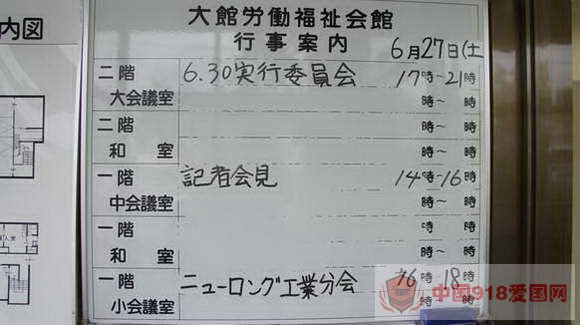 内図
大館労働福祉会館
行事案内 6月27日(土
二階 6.30実行委員会 17時~21時
大会議室 時~ 時
二階 時~ 時
和 室 時~ 時
一階 記者会見 14時~16時
中会議室 時~ 時
一階 時 時
和 室 時~ 時
一階 ニューロング工業分会 16時 18時
小会議室 時 時
中国918爱国网